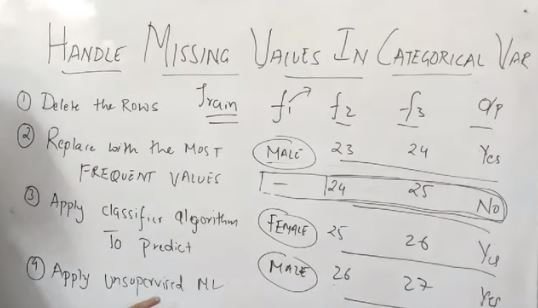 HANDLE MISSING VALUES IN CATEGORICAL VAR
① Delete the Rows
② Replace with the MOST
FREQUENT VALUES
③ Apply classifier algorithm
To Predict
④ Apply unsupervised ML
Train f1 f2 f3 O/P
MALE 23 24 Yes
— 24 25 No
FEMALE 25 26 Yes
MALE 26 27 Yes